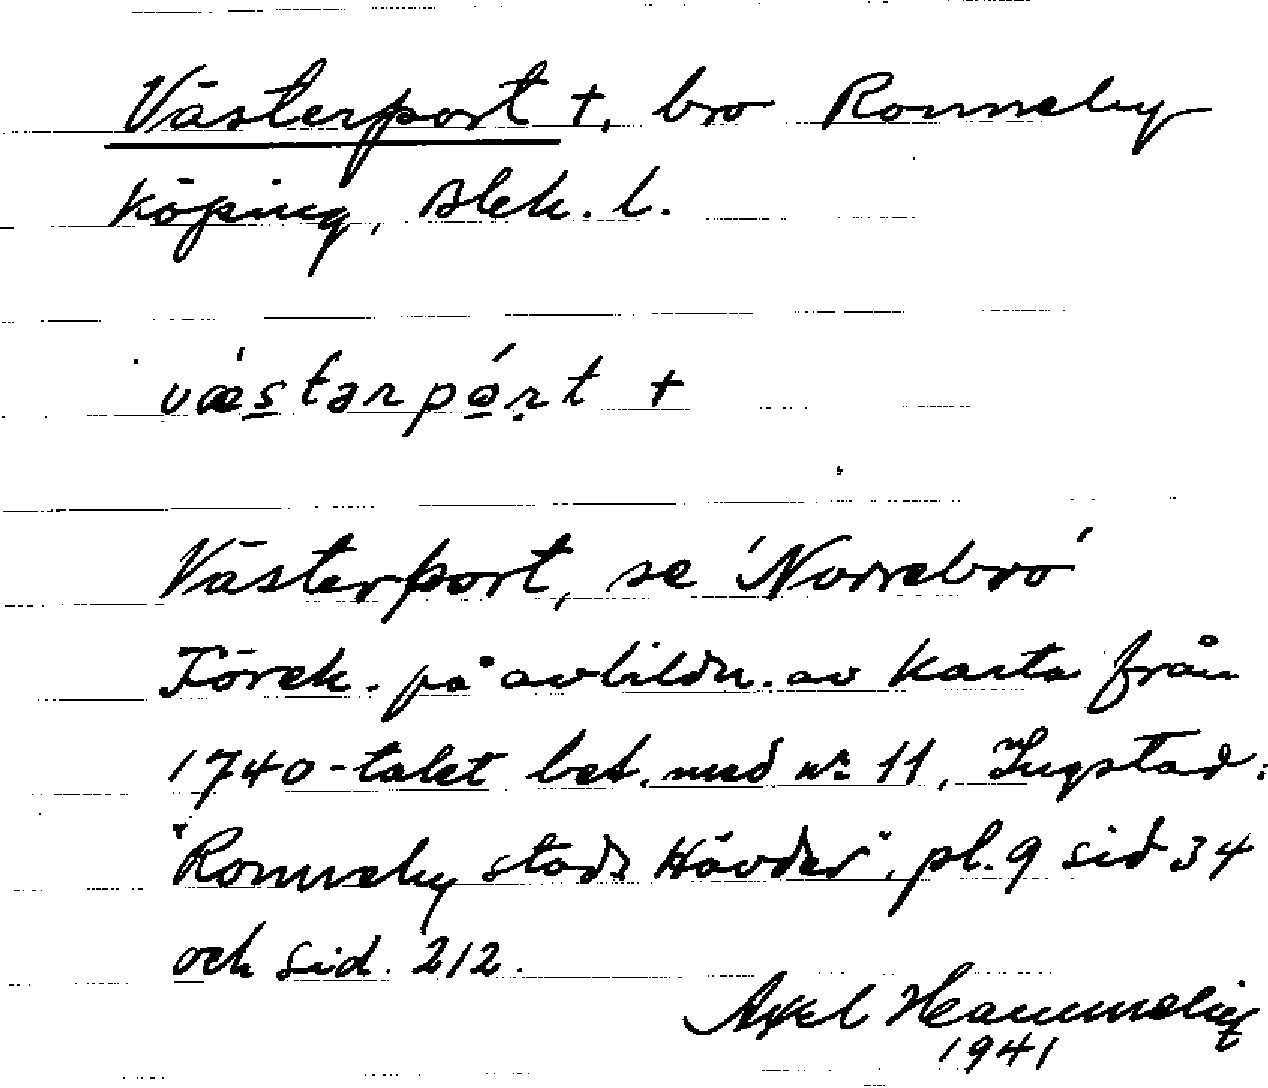 Västerport †, bro Ronneby
köping, Blek. l.
væ̍stərpó̱ṛt †
Västerport, se 'Norrebro'
Förek. på avbildn. av karta från
1740-talet bet. med nr 11, Ingstad:
"Ronneby stads Hävder", pl. 9 sid 34
och sid. 212.
Axel
1941